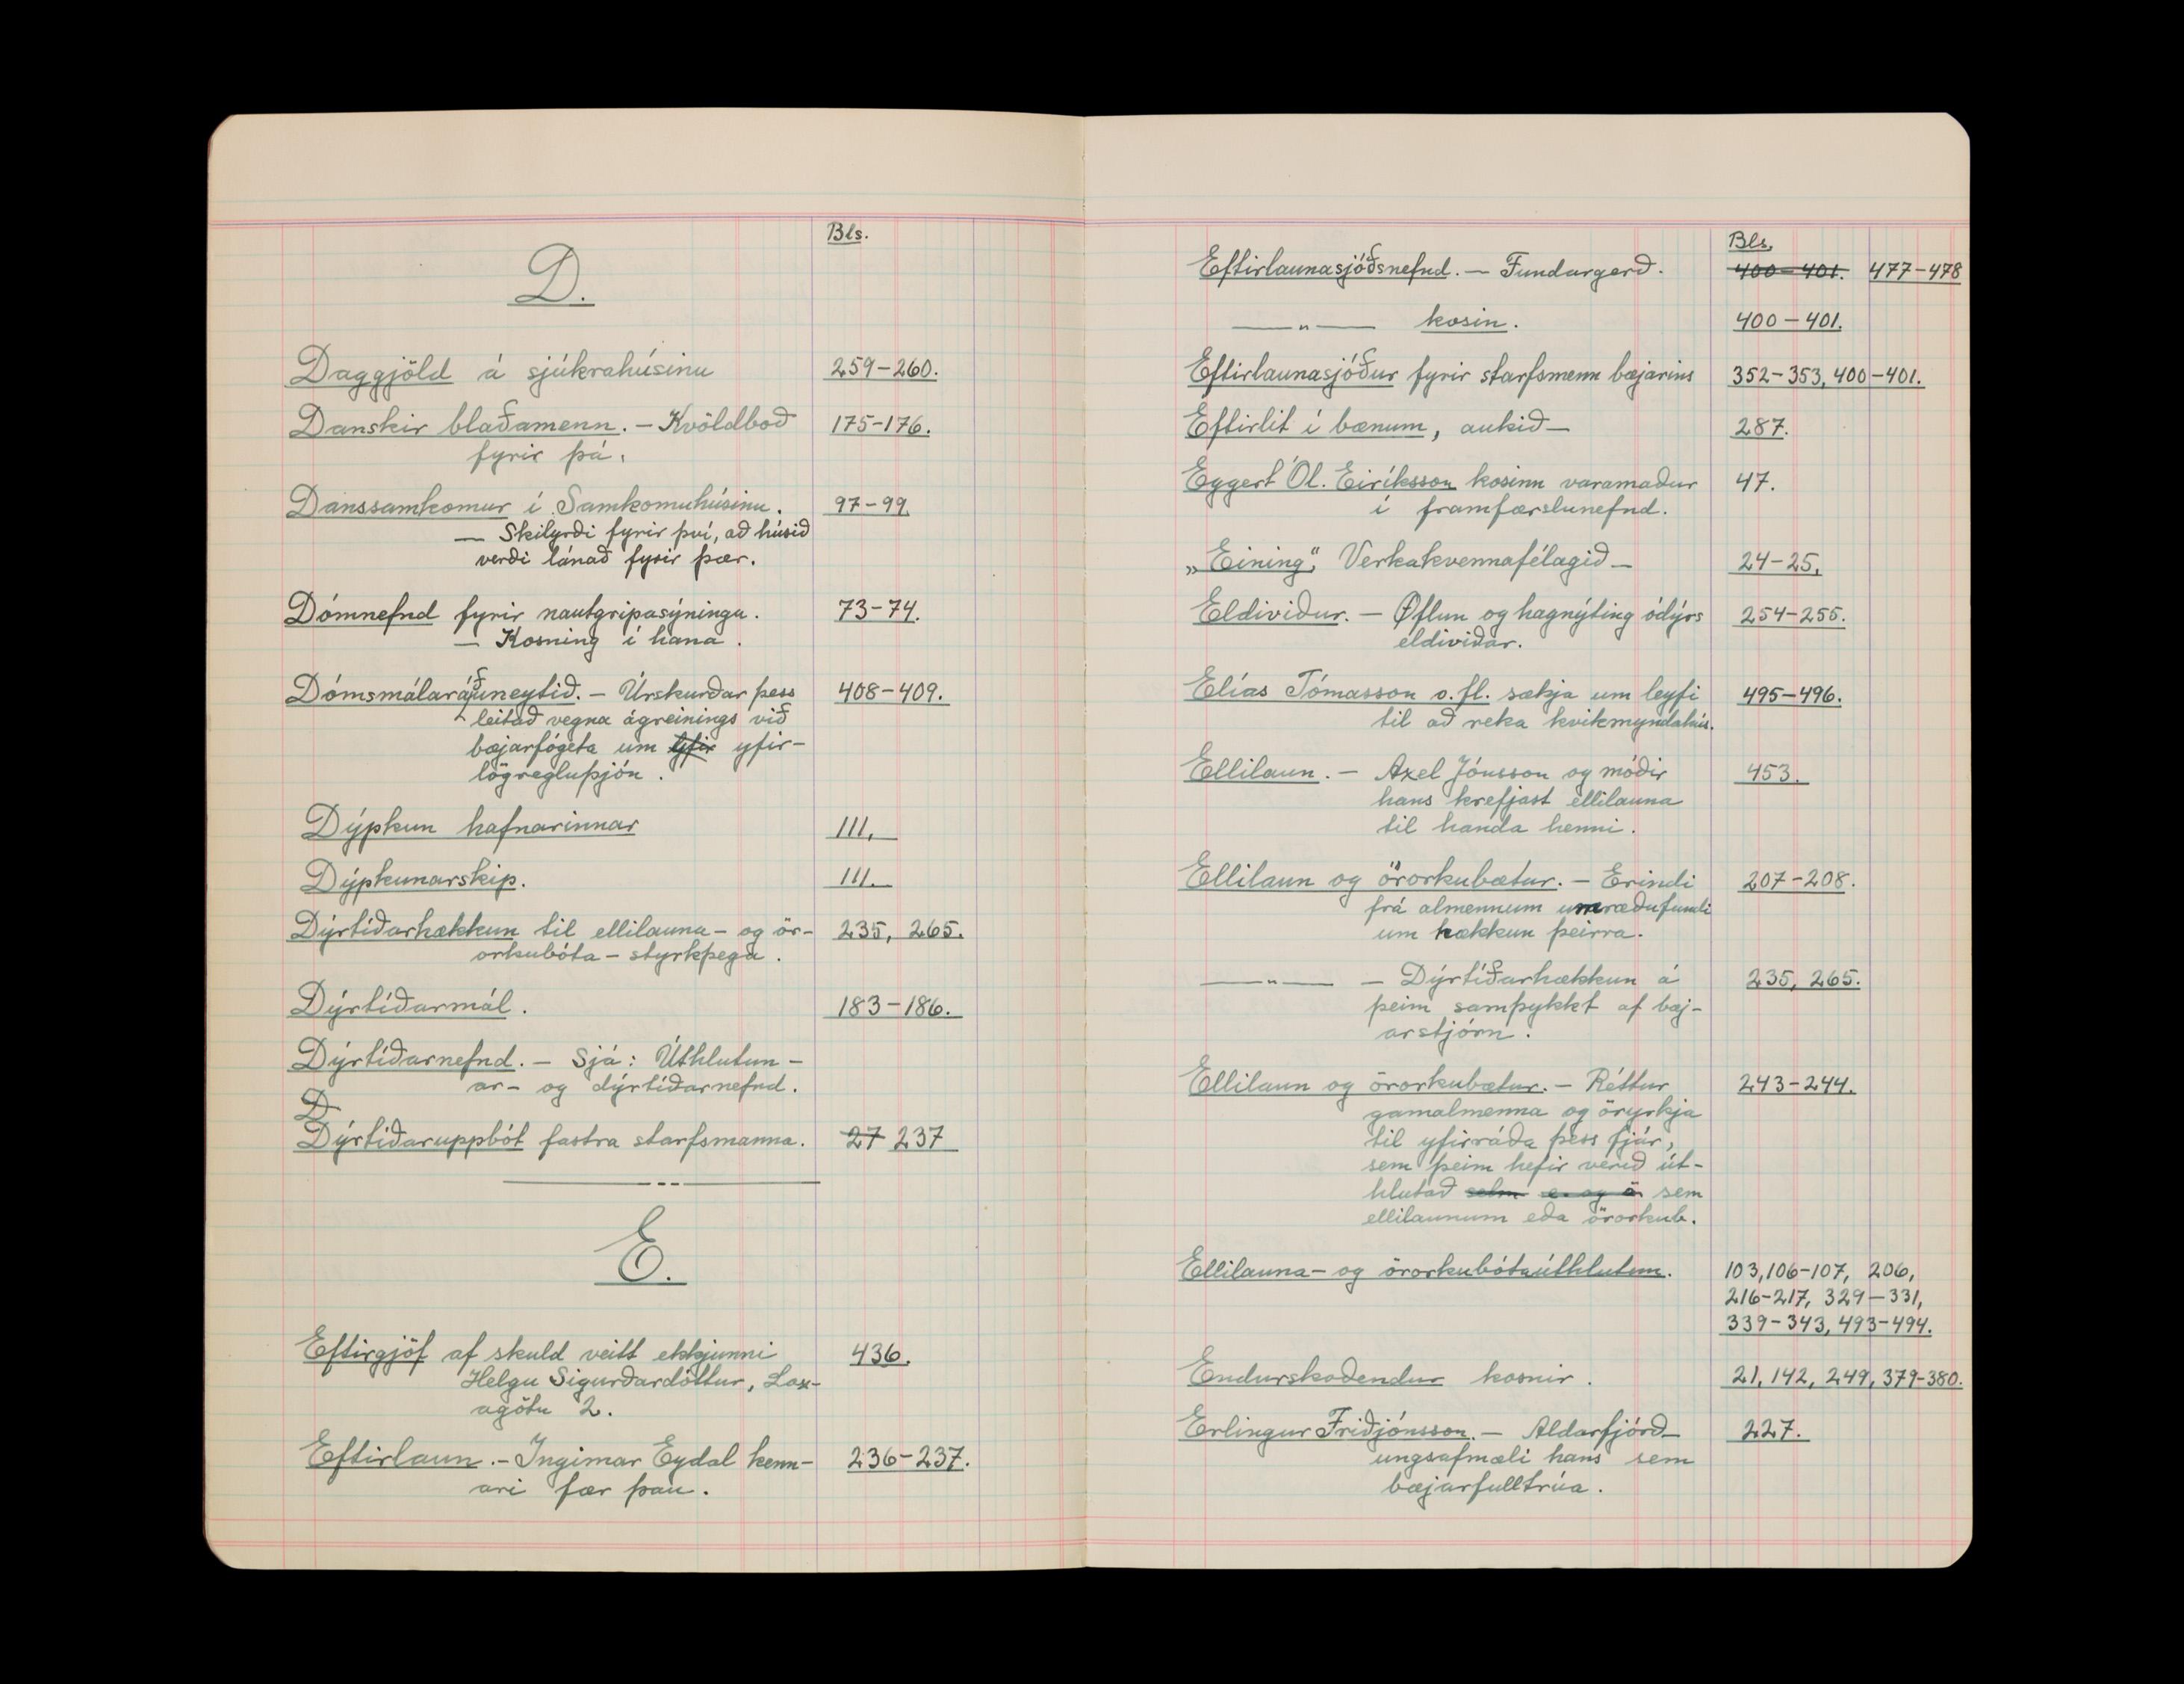 Bls.
D.
Daggjöld á sjúkrahúsinu 259-260.
Danskir blaðamenn. - Kvöldboð 175-176.
fyrir þá.
Danssamkomur í Samkomuhúsinu. 97-99.
— Skilyrði fyrir því, að húsið
verði lánað fyrir þær.
Dómnefnd fyrir nautgripasýningu. 73-74.
— Kosning í hana.
Dómsmálaráðuneytið. - Úrskurðar þess 408-409.
leitað vegna ágreinings við
bæjarfógeta um yfir yfir-
lögregluþjón.
Dýpkun hafnarinnar 111.
Dýpkunarskip. 111.
Dýrtíðarhækkun til ellilauna- og ör- 235, 265.
orkubóta-styrkþega.
Dýrtíðarmál. 183-186.
Dýrtíðarnefnd. - Sjá: Úthlutun-
ar- og dýrtíðarnefnd.
D
Dýrtíðaruppbót fastra starfsmanna. 27 237
E.
Eftirgjöf af skuld veitt ekkjunni 436.
Helgu Sigurðardóttur, Lax-
agötu 2.
Eftirlaun. - Ingimar Eydal kenn- 236-237.
ari fær þau.
Bls.
Eftirlaunasjóðsnefnd. - Fundargerð. 400-401. 477-478
—„— kosin. 400-401.
Eftirlaunasjóður fyrir starfsmenn bæjarins 352-353, 400-401.
Eftirlit í bænum, aukið— 287.
Eggert Ól. Eiríksson kosinn varamaður 47.
í framfærslunefnd.
„Eining", Verkakvennafélagið— 24-25.
Eldiviður. - Öflun og hagnýting ódýrs 254-255.
eldiviðar.
Elías Tómasson o.fl. sækja um leyfi 495-496.
til að reka kvikmyndahús.
Ellilaun. - Axel Jónsson og móðir 453.
hans krefjast ellilauna
til handa henni.
Ellilaun og örorkubætur. - Erindi 207-208.
frá almennum umræðufundi
um hækkun þeirra.
—„— - Dýrtíðarhækkun á 235, 265.
þeim samþykkt af bæj-
arstjórn.
Ellilaun og örorkubætur. - Réttur 243-244.
gamalmenna og öryrkja
til yfirráða þess fjár,
sem þeim hefir verið út-
hlutað sem e. og ö sem
ellilaunum eða örorkub.
Ellilauna- og örorkubótaúthlutun. 103, 106-107, 206,
216-217, 329-331,
339-343, 493-494.
Endurskoðendur kosnir. 21, 142, 249, 379-380.
Erlingur Friðjónsson. - Aldarfjórð- 227.
ungsafmæli hans sem
bæjarfulltrúa.